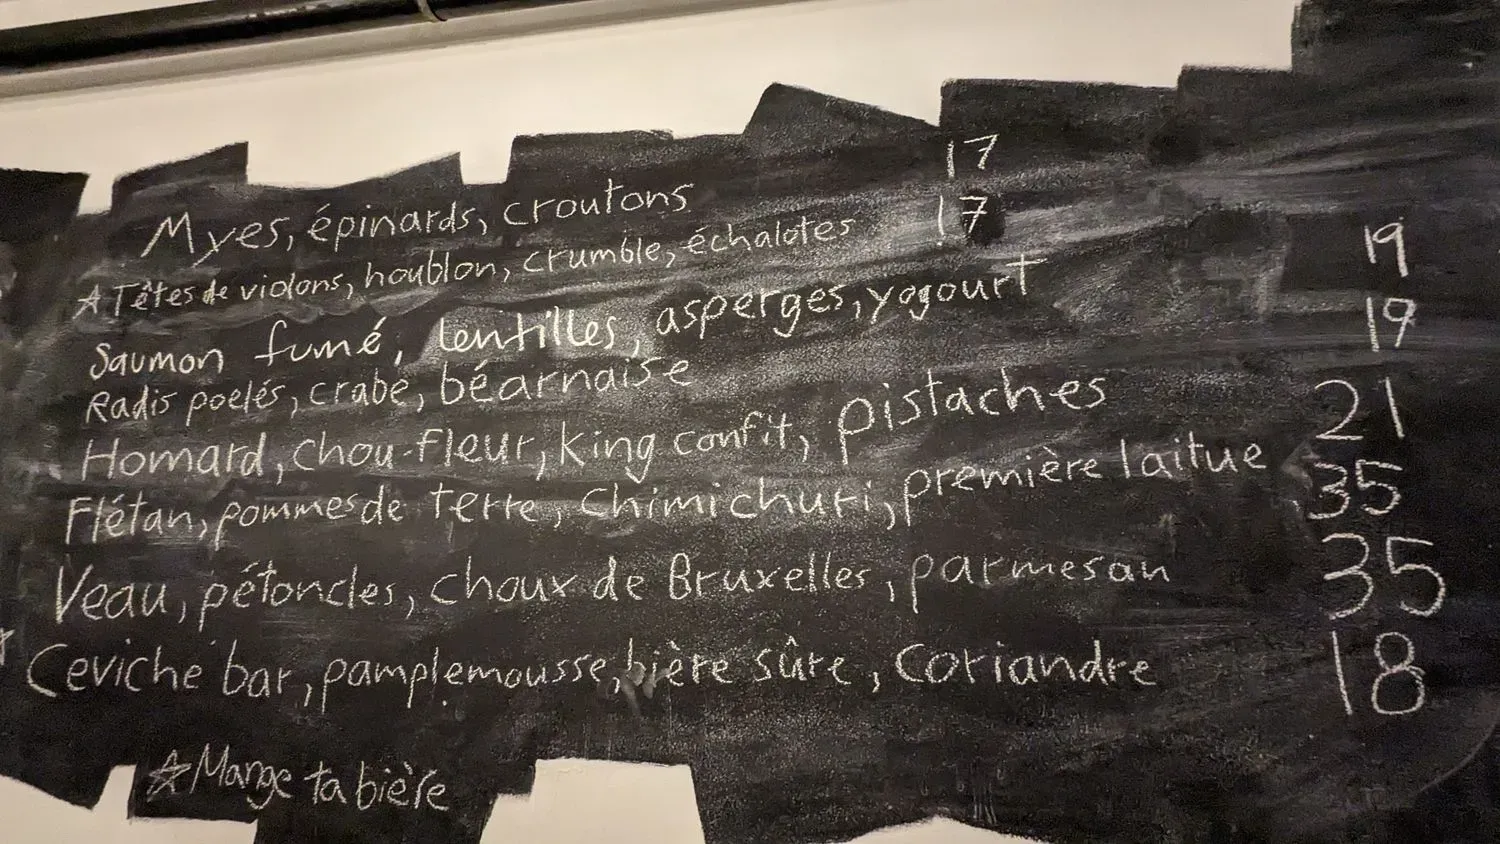 Myes, épinards, croutons 17
☆ Têtes de violons, houblon, crumble, échalotes 17
Saumon fumé, lentilles, asperges, yogourt 19
Radis poelés, crabe, béarnaise 19
Homard, chou-fleur, king confit, pistaches 21
Flétan, pommes de terre, chimichuri, première laitue 35
Veau, pétoncles, choux de Bruxelles, parmesan 35
☆ Ceviche bar, pamplemousse, bière sûre, coriandre 18
☆ Mange ta bière